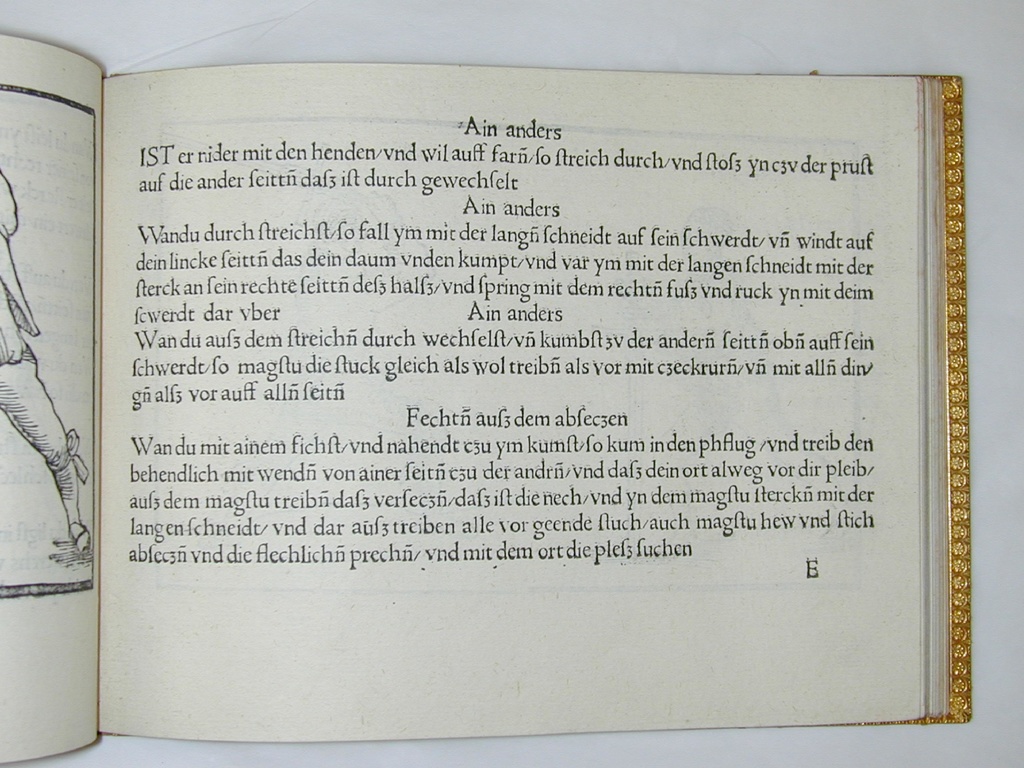 Ain anders
IST er nider mit den henden/vnd wil auff farn̄/so ſtreich durch/vnd ſtoſʒ yn cʒv der pruſt
auf die ander ſeittn̄ daſʒ iſt durch gewechſelt
Ain anders
Wandu durch ſtreichſt/ſo fall ym mit der langn̄ ſchneidt auf ſein ſchwerdt/vn̄ windt auf
dein lincke ſeittn̄ das dein daum vnden kumpt/vnd var ym mit der langen ſchneidt mit der
ſterck an ſein rechte ſeittn̄ deſʒ halſʒ/vnd ſpring mit dem rechtn̄ fuſʒ vnd ruck yn mit deim
ſewerdt dar vber Ain anders
Wan du auſʒ dem ſtreichn̄ durch wechſelſt/vn̄ kumbſt ʒv der andern̄ ſeittn̄ obn̄ auff ſein
ſchwerdt/ſo magſtu die ſtuck gleich als wol treibn̄ als vor mit cʒeckrurn̄/vn̄ mit alln̄ din/
gn̄ alſʒ vor auff alln̄ ſeitn̄
Fechtn̄ auſʒ dem abſecʒen
Wan du mit ainem fichſt/vnd nahendt cʒu ym kumſt/ſo kum in den phflug/vnd treib den
behendlich mit wendn̄ von ainer ſeitn̄ cʒu der andrn̄/vnd daſʒ dein ort alweg vor dir pleib/
auſʒ dem magſtu treibn̄ daſʒ verſecʒn̄/daſʒ iſt die nech/vnd yn dem magſtu ſterckn̄ mit der
langen ſchneidt/vnd dar auſʒ treiben alle vor geende ſtuch/auch magſtu hew vnd ſtich
abſecʒn̄ vnd die flechlichn̄ prechn̄/vnd mit dem ort die pleſʒ ſuchen
E